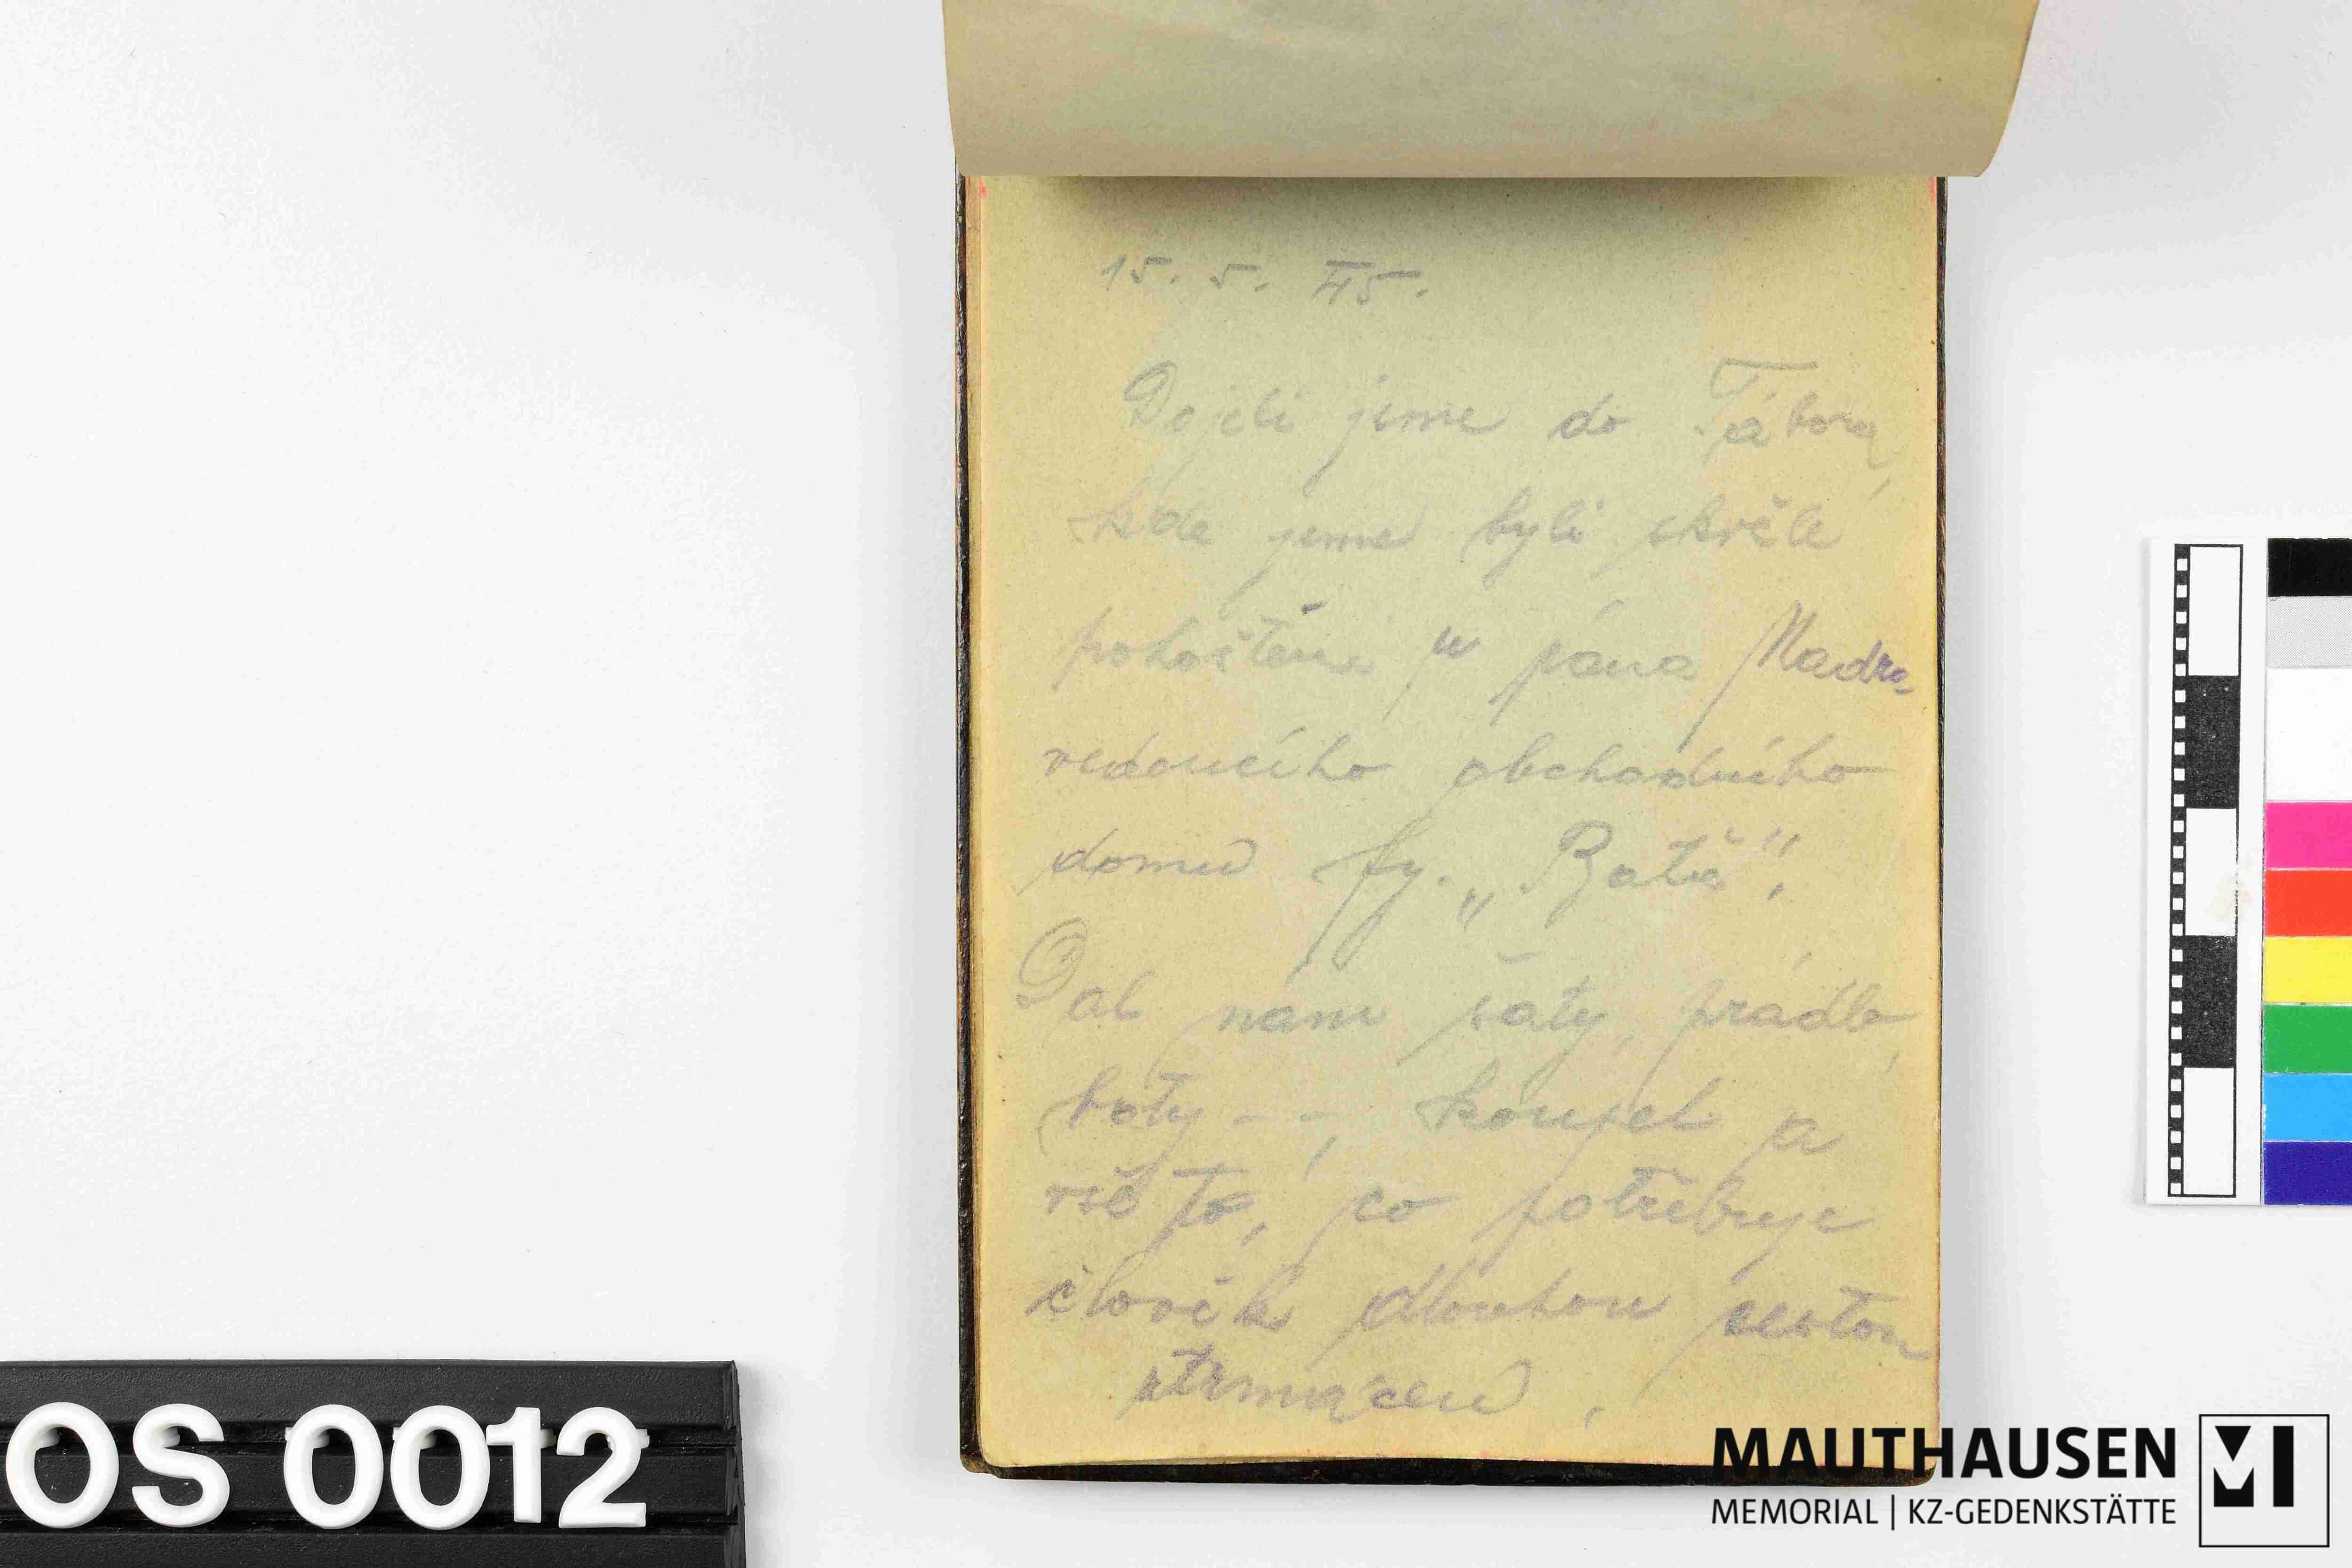 15. 5. 45.
Dojeli jsme do Tábora,
kde jsme byli skvěle
pohoštěni u pána
vedoucího obchodního
domu fy. „Baťa".
Dal nám šaty, prádlo,
boty - -, koupel a
vše to, co potřebuje
člověk dlouhou cestou
utrmácen.
OS 0012
MAUTHAUSEN
MEMORIAL | KZ-GEDENKSTÄTTE